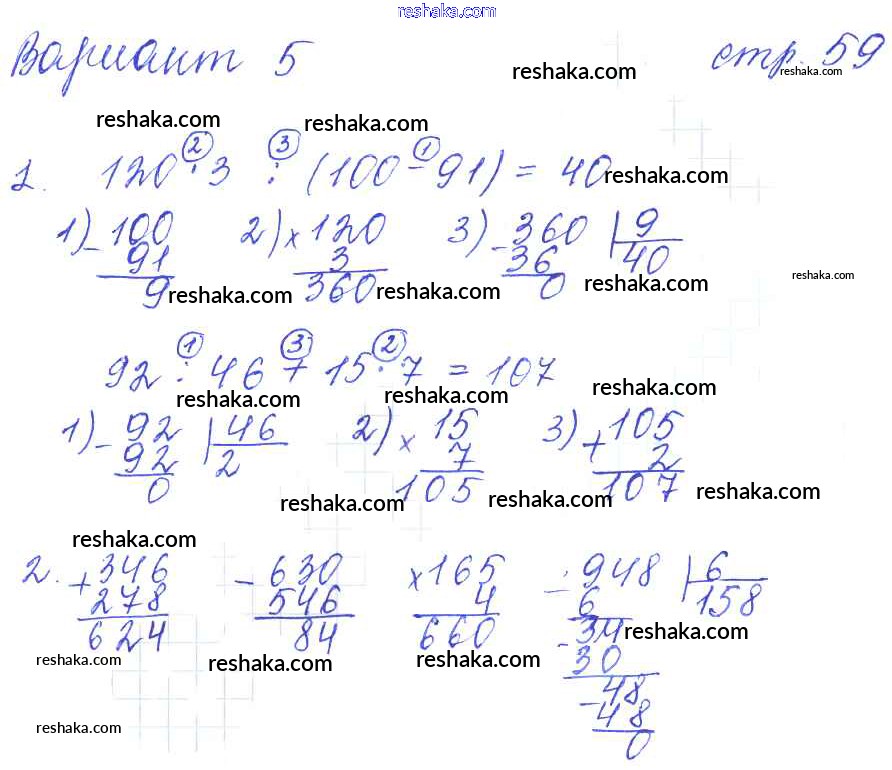 reshaka.com
Вариант 5 стр. 59
reshaka.com reshaka.com
reshaka.com reshaka.com
② ③ ①
1. 120 · 3 : (100 - 91) = 40 reshaka.com
1) - 100 2) × 120 3) - 360 | 9
91 3 36 40
9 360 0
reshaka.com reshaka.com reshaka.com reshaka.com
① ③ ②
92 : 46 + 15 · 7 = 107
reshaka.com reshaka.com reshaka.com
1) - 92 | 46 2) × 15 3) + 105
92 2 7 2
0 105 107
reshaka.com reshaka.com reshaka.com
reshaka.com
2. + 346 - 630 × 165 - 948 | 6
278 546 4 6 158
624 84 660 34
reshaka.com reshaka.com reshaka.com reshaka.com
- 30
- 48
48
reshaka.com
0